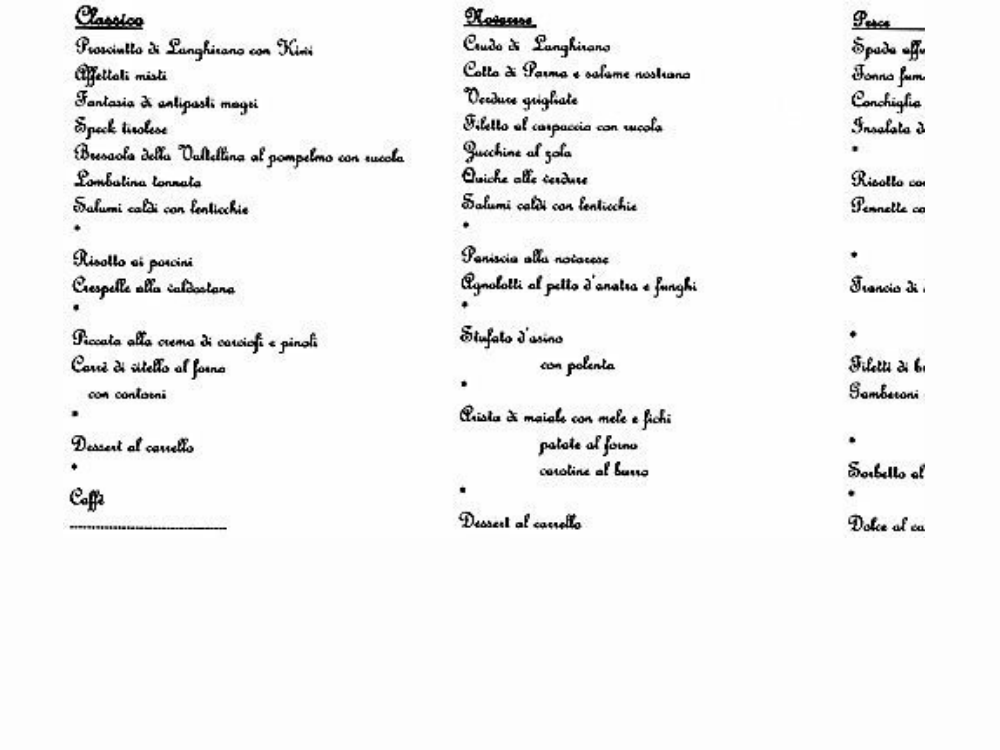 Classico
Prosciutto di Langhirano con Kiwi
Affettati misti
Fantasia di antipasti magri
Speck tirolese
Bresaola della Valtellina al pompelmo con rucola
Lombatina tonnata
Salumi caldi con lenticchie
*
Risotto ai porcini
Crespelle alla valdostana
*
Piccata alla crema di carciofi e pinoli
Carrè di vitello al forno
con contorni
*
Dessert al carrello
*
Caffè
Novarese
Crudo di Langhirano
Cotto di Parma e salame nostrano
Verdure grigliate
Filetto al carpaccio con rucola
Zucchine al zola
Quiche alle verdure
Salumi caldi con lenticchie
*
Paniscia alla novarese
Agnolotti al petto d'anatra e funghi
*
Stufato d'asino
con polenta
*
Arista di maiale con mele e fichi
patate al forno
carotine al burro
*
Dessert al carrello
Pesce
Spada affu
Tonno fum
Conchiglia
Insalata d
*
Risotto co
Pennette co
*
Trancio di
*
Filetti di b
Gamberoni
*
Sorbetto al
*
Dolce al ca